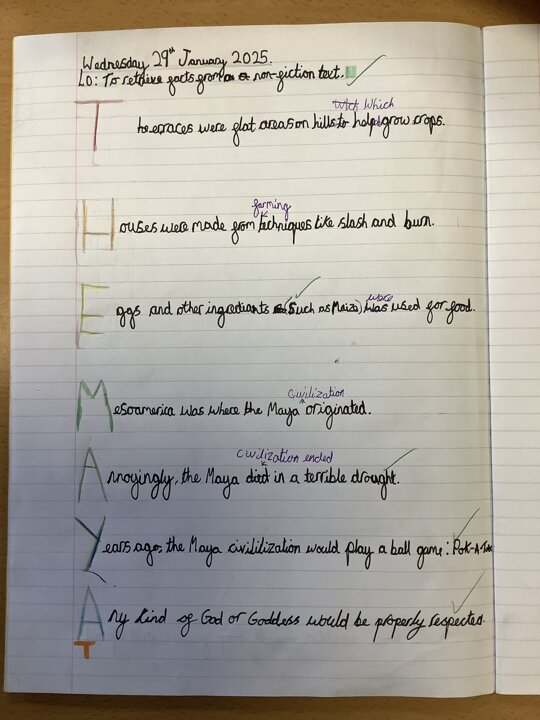 Wednesday 29th January 2025.
LO: To retrieve facts from a non-fiction text.
which
T he erraces were flat areas on hills to help grow crops.
farming
H ouses were made from techniques like slash and burn.
were
E ggs and other ingredients (Such as Maize) was used for food.
civilization
M esoamerica was where the Maya originated.
civilization ended
A nnoyingly, the Maya died in a terrible drought.
Y ears ago, the Maya civililization would play a ball game: Pok-A-Tok
A ny kind of God or Goddess would be properly respected.
T